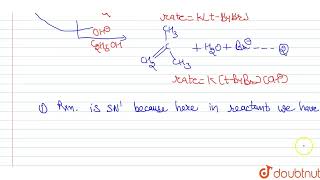 rate = k[t-BuBr]
OH⊖
C2H5OH
CH3
C
CH2 CH3 + H2O + Br⊖ ---- ②
rate = k [t-BuBr] [OH⊖]
① Rxn. is SN1 because here in reactant we have
doubtnut